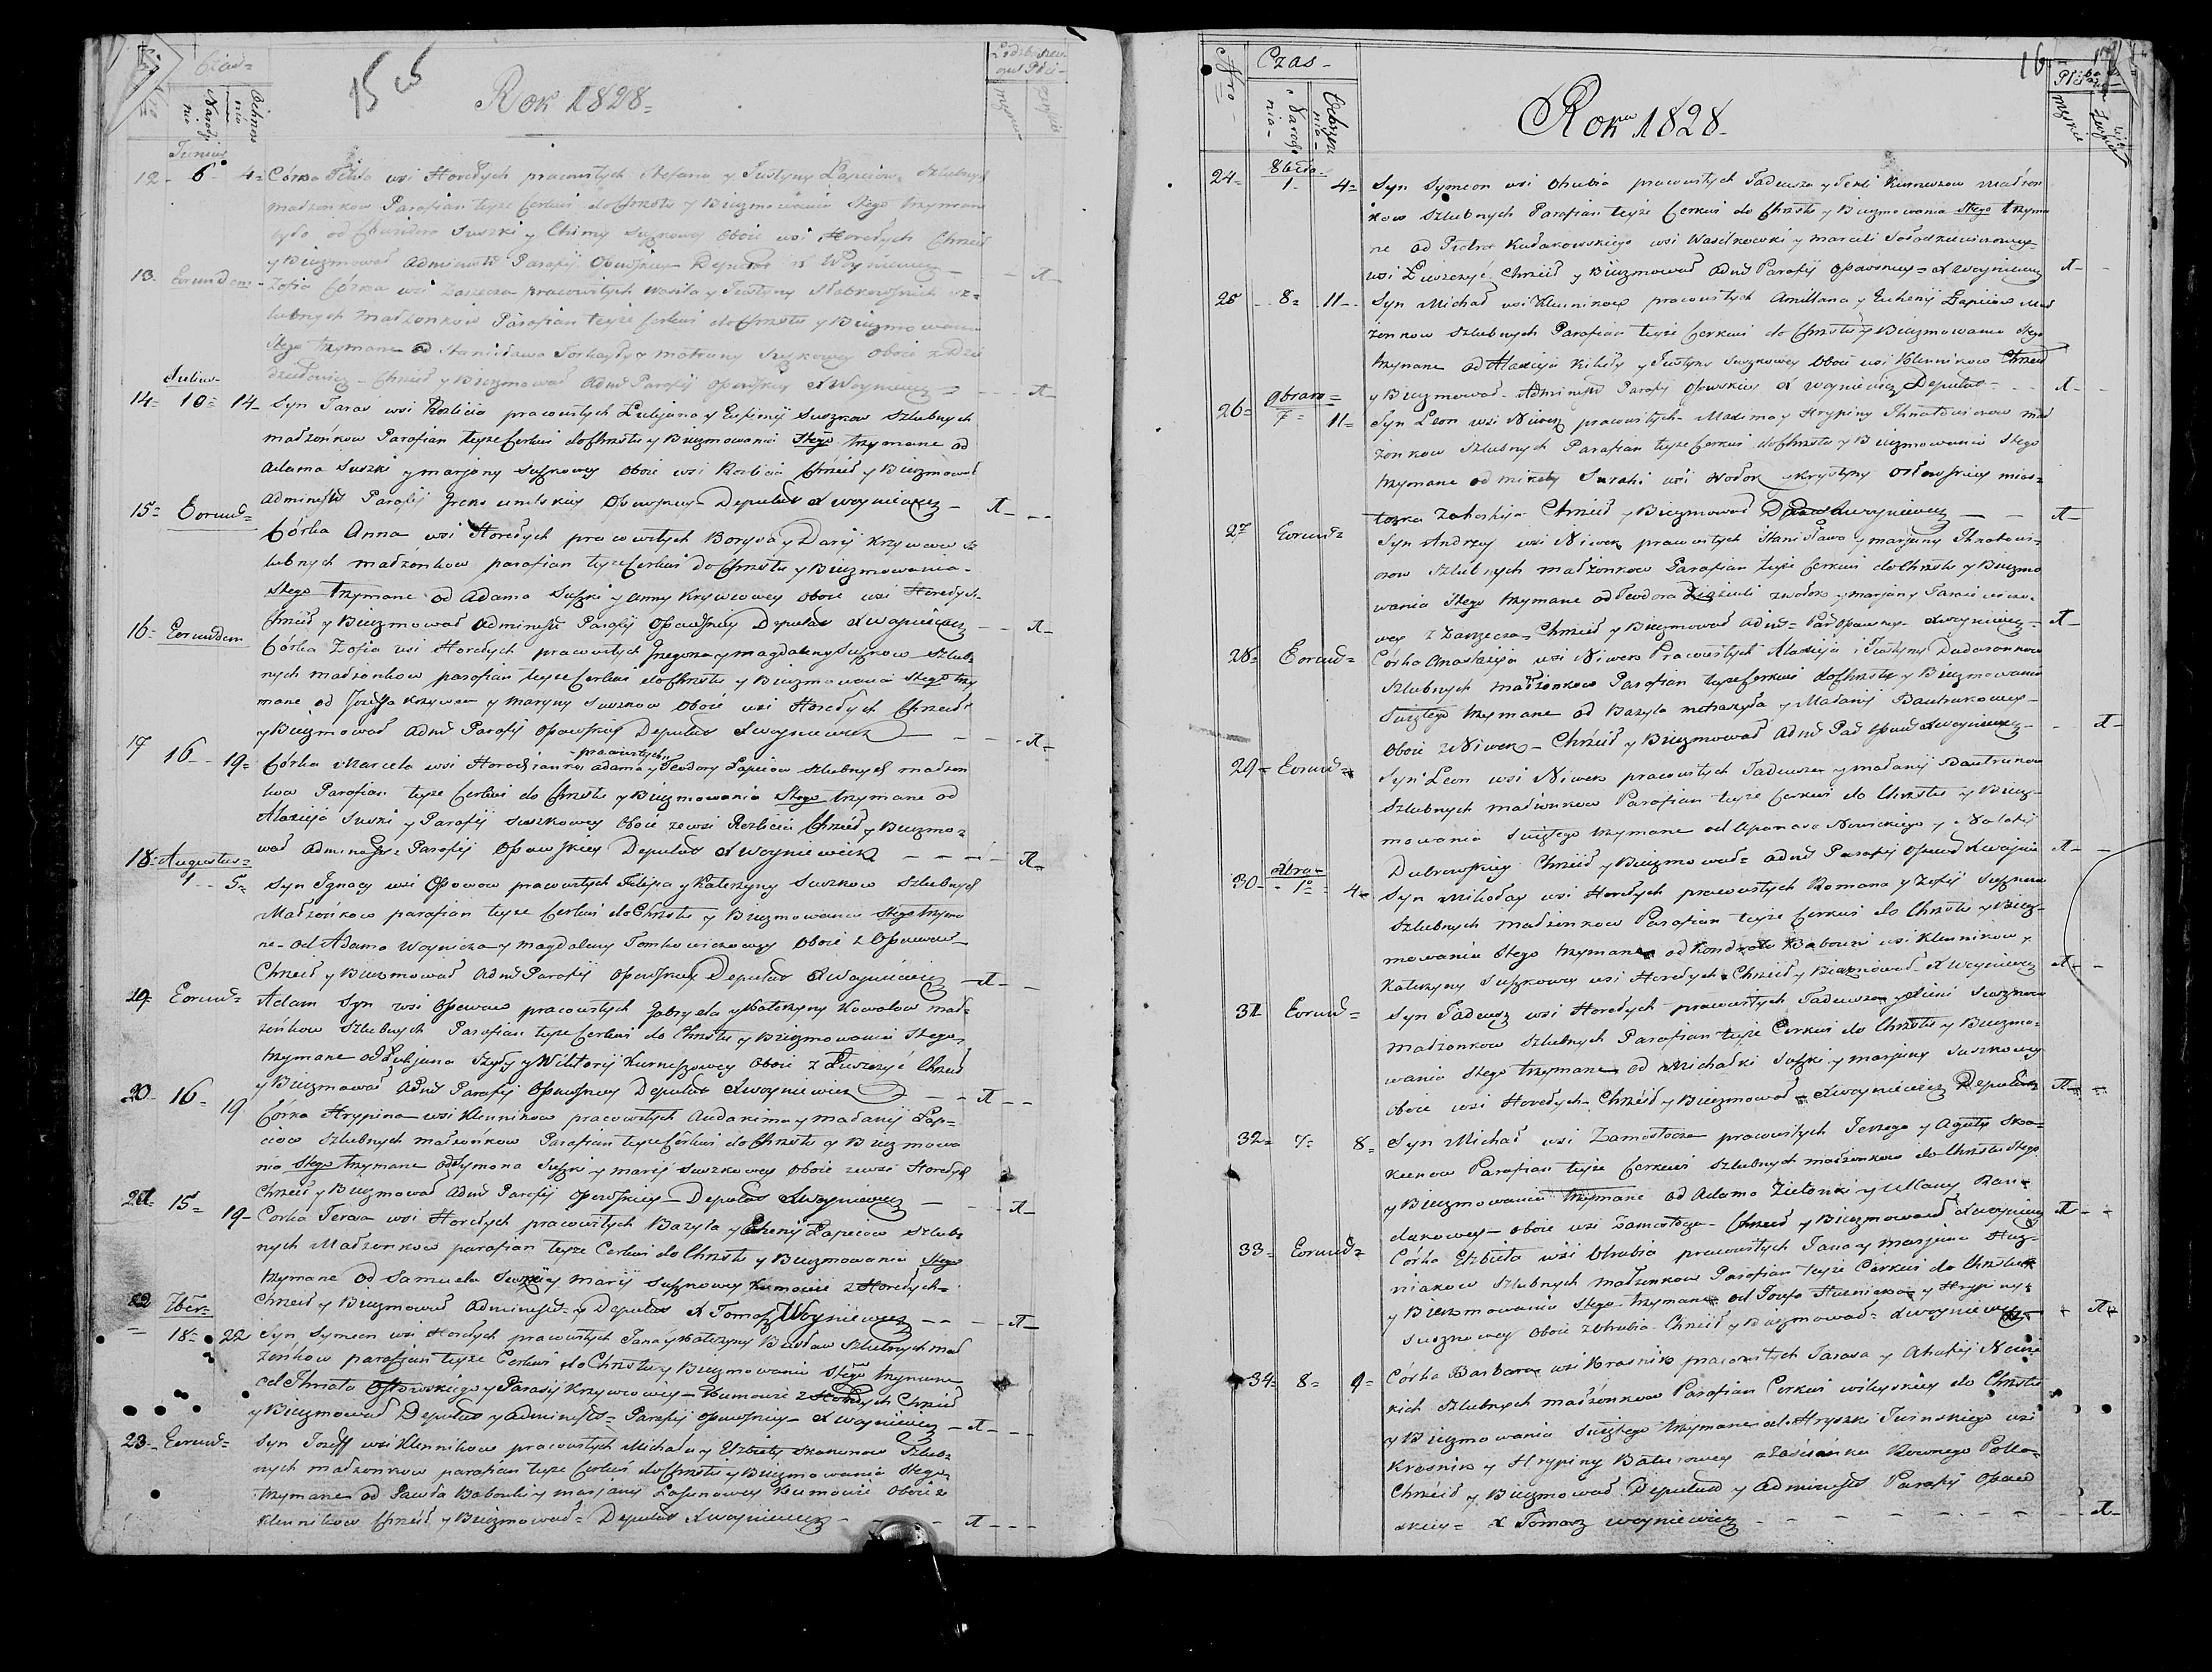 15
Rok 1828
Junius
12 - 6 - 4 = Córka Tekla wsi Horodych pracowitych Stefana y Justyny Łapciow Szlubnych
małżonkow Parafian teyże Cerkwi do Chrztu y Bierzmowania Stego trzymane
było od Suszki y Chimy Suszkowey oboie wsi Horodych Chrzcił
y Bierzmował Administr Parafij Opowskiey Deputat X Woyniewicz
13. Eorundem - Zofia Córka wsi Zarzecza pracowitych Wasila y Justyny Słabkowskich sz=
lubnych małżonkow Parafian teyże Cerkwi do Chrztu y Bierzmowania
Stego trzymane od Stanisława y Matruny Suszkowey oboie
Chrzcił y Bierzmował Adm Parafij Opowskiey X Woyniewicz
Julius
14 = 10 = 14 - Syn Taras wsi Rozlicia pracowitych Łukjana y Eufimij Suszkow Szlubnych
małżonkow Parafian teyże Cerkwi do Chrztu y Bierzmowania Stego trzymane od
Adama Suszki y Marjany Suszkowey oboie wsi Rozlicia Chrzcił y Bierzmował
Administr Parafij Greko unitskiey Opowskiey Deputat X Woyniewicz
15 = Eorund =
Córka Anna wsi Horodych pracowitych Borysa y Darij Krzywcow Sz
lubnych małżonkow parafian teyże Cerkwi do Chrztu y Bierzmowania
Stego trzymane od Adama Suszki y Anny Krzywcowey oboie wsi Horodych
Chrzcił y Bierzmował Administr Parafij Opowskiey Deputat X Woyniewicz
16 = Eorundem
Córka Zofia wsi Horodych pracowitych Grzegorza y Magdaleny Suszkow Szlub=
nych małżonkow parafian teyże Cerkwi do Chrztu y Bierzmowania Stego trzy
mane od Jozefa Krzywca y Maryny Suszkow oboie wsi Horodych Chrzcił
y Bierzmował Adm Parafij Opowskiey Deputat X Woyniewicz
17 16 - 19 = Córka Marcela wsi pracowitych Adama y Teodory Łapciow Szlubnych małżon
kow Parafian teyże Cerkwi do Chrztu y Bierzmowania Stego trzymane od
Alaxieja Suszki y Parafij Suszkowey oboie zewsi Rozlicia Chrzcił y Bierzmo=
wał Administr Parafij Opowskiey Deputat X Woyniewicz
18 = Augustus =
1 - 5 = Syn Jgnacy wsi Opowow pracowitych Filipa y Katerzyny Suszkow Szlubnych
Małżonkow parafian teyże Cerkwi do Chrztu y Bierzmowania Stego trzyma
ne - od Adama Woynicza y Magdaleny Tomkowiczowey oboie z Opowow
Chrzcił y Bierzmował Adm Parafij Opowskiey Deputat X Woyniewicz
19 = Eorund = Adam Syn wsi Opowow pracowitych Gabryela y Katerzyny Kowalow mał=
żonkow Szlubnych Parafian teyże Cerkwi do Chrztu y Bierzmowania Stego
trzymane od Łukjana Szyły y Wiktorij Kurneszowey oboie z Łuszczyć Chrzcił
y Bierzmował Adm Parafij Opowskiey Deputat X Woyniewicz
20 - 16 - 19 Córka Hrypina wsi Klennikow pracowitych Audakima y Małanij Łap=
ciow Szlubnych małżonkow Parafian teyże Cerkwi do Chrztu y Bierzmowa
nia Stego trzymane od Symona Suszki y Marij Suszkowey oboie zewsi Horodych
Chrzcił y Bierzmował Adm Parafij Opowskiey Deputat X Woyniewicz
21 = 15 = 19 - Córka Teresa wsi Horodych pracowitych Bazyla y Euhenij Łapciow Szlub=
nych Małżonkow parafian teyże Cerkwi do Chrztu y Bierzmowania Stego
trzymane od Samuela Suszki y Marij Suszkowey Kumowie z Horodych
Chrzcił y Bierzmował Administr y Deputat X Tomasz Woyniewicz
22 7ber =
18 = 22 Syn Symeon wsi Horodych pracowitych Jana y Katerzyny Szlubnych mał
żonkow parafian teyże Cerkwi do Chrztu y Bierzmowania Stego trzymane
od Jhnata Ostrowskiego y Parasij Krzywcowey - Kumowie z Horodych Chrzcił
y Bierzmował Deputat y Administr = Parafij Opowskiey - X Woyniewicz
23 - Eorund = Syn Jozeff wsi Klennikow pracowitych Michała y Elzbiety Skakunow Szlub=
nych małżonkow parafian teyże Cerkwi do Chrztu y Bierzmowania Stego
trzymane od Pawła Babouki y Marjany Kumowie oboie z
Klennikow Chrzcił y Bierzmował = Deputat X Woyniewicz
16
Nro
Czas -
Rok 1828
24 = 8bris
1 - 4 = Syn Symeon wsi Ohubia pracowitych Tadeusza y Tekli Kurneszow małżon
kow Szlubnych Parafian teyże Cerkwi do Chrztu y Bierzmowania Stego trzyma
ne od Piotra Kułakowskiego wsi Wasilkowski y Marceli
wsi Łuszczyć Chrzcił y Bierzmował Adm Parafij Opowskiey = X Woyniewicz
25 - 8 = 11 - Syn Michał wsi Klennikow pracowitych Amillana y Euhenij Łapciow Mał
żonkow Szlubnych Parafian teyże Cerkwi do Chrztu y Bierzmowania Stego
trzymane od Alaxieja y Justyny Suszkowey oboie wsi Klennikow Chrzcił
y Bierzmował Administr Parafij Opowskiey X Woyniewicz Deputat
26 = 9bram =
7 = 11 = Syn Leon wsi Niwek pracowitych Maxima y Hrypiny Jhnatowiczow mał
żonkow Szlubnych Parafian teyże Cerkwi do Chrztu y Bierzmowania Stego
trzymane od Mikity wsi Wołok y Krystyny Ostrowskiey mias=
teczka Chrzcił y Bierzmował X Woyniewicz
27 Eorund = Syn Andrzey wsi Niwek pracowitych Stanisława y Marjany Jhnatowi=
czow Szlubnych małżonkow Parafian teyże Cerkwi do Chrztu y Bierzmo
wania Stego trzymane od Teodora y Marjany
wey z Zarzecza Chrzcił y Bierzmował Adm = Par Opowskiey X Woyniewicz
28 = Eorund = Córka Anastazija wsi Niwek Pracowitych Alaxieja i Justyny Dudaronkow
Szlubnych Małżonkow Parafian teyże Cerkwi do Chrztu y Bierzmowania
Swiętego trzymane od Bazyla y Małanij Bautrukowey
oboie z Niwek - Chrzcił y Bierzmował Adm Par Opow X Woyniewicz
29 = Eorund = Syn Leon wsi Niwek pracowitych Tadeusza y Małanij Bautrukow
Szlubnych małżonkow Parafian teyże Cerkwi do Chrztu y Bierz=
mowania Swiętego trzymane od Apanasa Nowickiego y Natalij
Dubrowskiey Chrzcił y Bierzmował = Adm Parafij Opow X Woynie
30 - Xbra -
1 = 4 = Syn Mikołay wsi Horodych pracowitych Romana y Zofij Suszkow
Szlubnych małżonkow Parafian teyże Cerkwi do Chrztu y Bierz=
mowania Stego trzymane od Kondrata Babouki wsi Klennikow y
Katerzyny Suszkowey wsi Horodych Chrzcił y Bierzmował X Woyniewicz
31 Eorund = Syn Tadeusz wsi Horodych pracowitych Tadeusza y Suszkow
Małżonkow Szlubnych Parafian teyże Cerkwi do Chrztu y Bierzmo=
wania Stego trzymane od Michałki Suszki y Marjany Suszkowey
oboie wsi Horodych Chrzcił y Bierzmował X Woyniewicz Deputat
32 = 7 = 8 = Syn Michał wsi Zamostocza pracowitych Jerzego y Agaty Ska=
kunow Parafian teyże Cerkwi Szlubnych małżonkow do Chrztu Stego
y Bierzmowania trzymane od Adama Zielonki y Ullany
oboie wsi Zamostocza Chrzcił y Bierzmował X Woyniewicz
33 = Eorund = Córka Elzbieta wsi Ohubia pracowitych Jana y Marjany
Szlubnych małżonkow Parafian teyże Cerkwi do Chrztu
y Bierzmowania Stego trzymane od Jozefa y Hrypiny
Suszkowey oboie z Ohubia Chrzcił y Bierzmował = X Woyniewicz
34 = 8 = 9 = Córka Barbara wsi Krasnik pracowitych Tarasa y Ahafij
kich Szlubnych małżonkow Parafian Cerkwi do Chrztu
y Bierzmowania Swiętego trzymane od Hryszki wsi
Krasnik y Hrypiny
Chrzcił y Bierzmował Deputat y Administr Parafij Opow
skiey = X Tomasz Woyniewicz